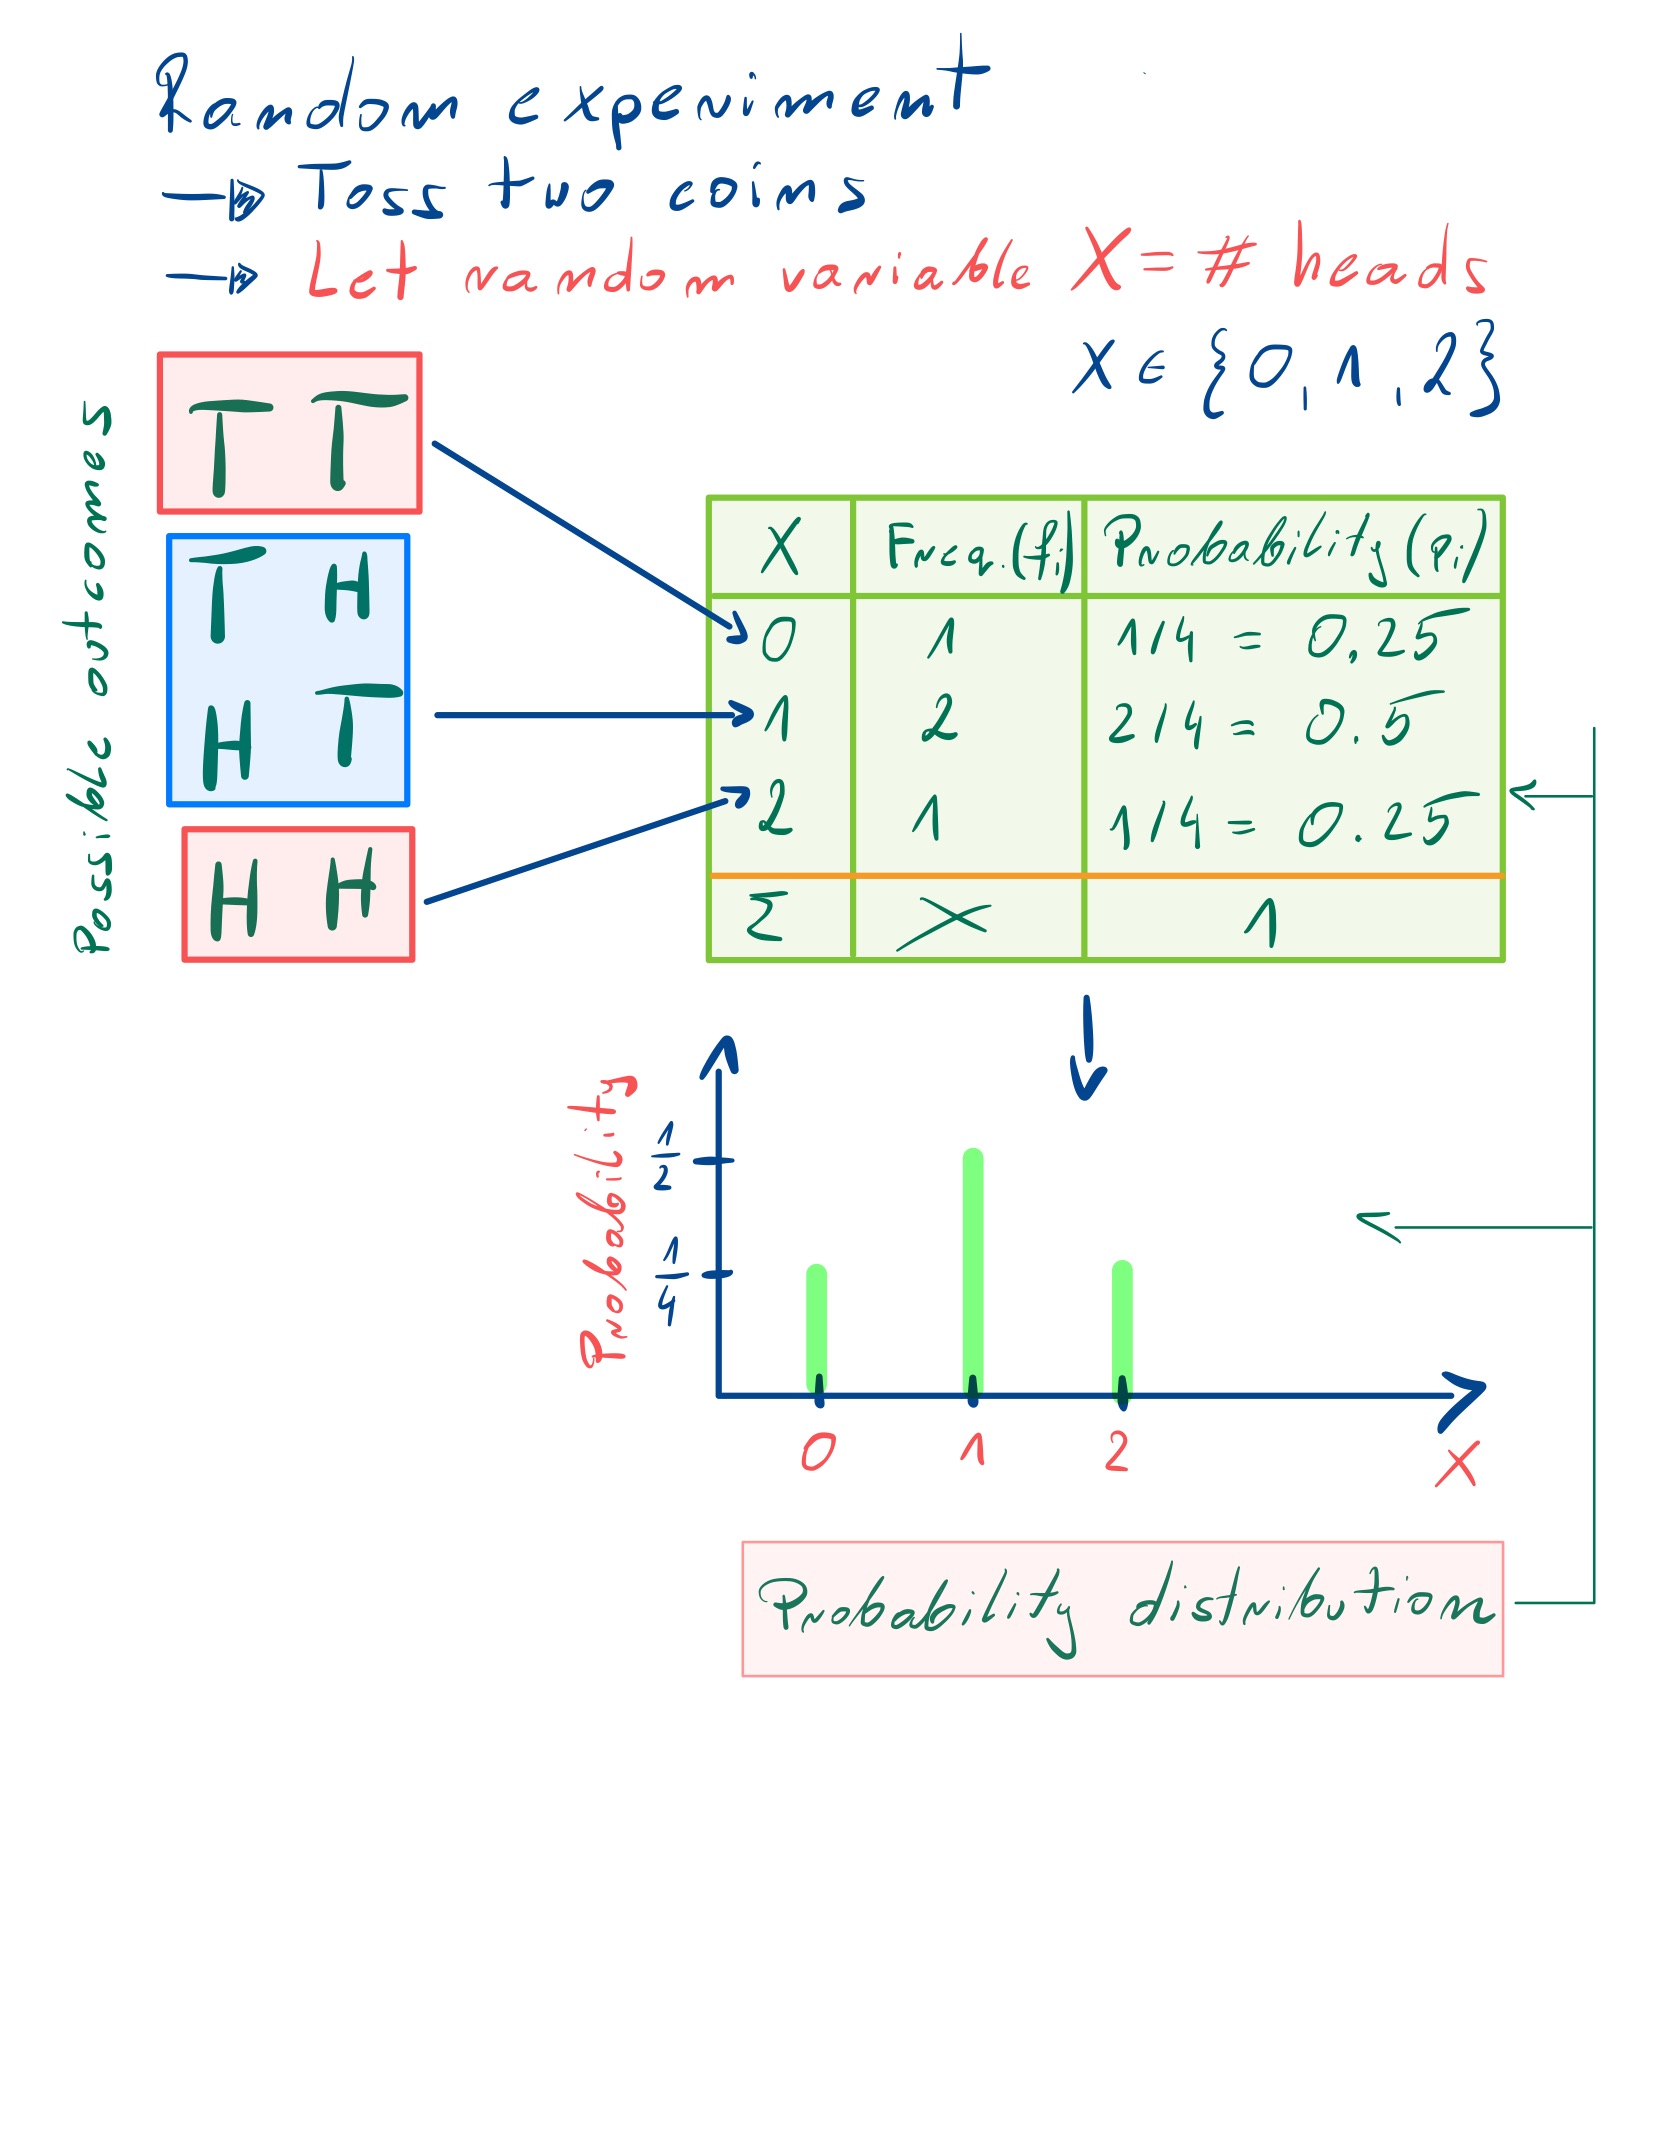 Random experiment
Toss two coins
Let random variable X = # heads
X ∈ {0, 1, 2}
Possible outcomes
T T
T H
H T
H H
X Freq. (fi) Probability (pi)
0 1 1/4 = 0.25
1 2 2/4 = 0.5
2 1 1/4 = 0.25
Σ X 1
Probability
1/2
1/4
0 1 2
X
Probability distribution